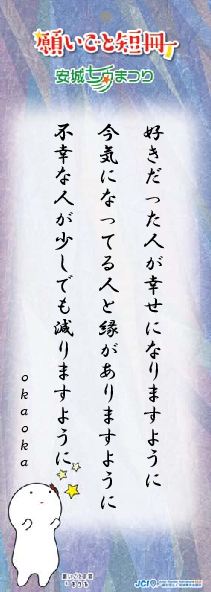 願いごと短冊
安城七夕まつり
好きだった人が幸せになりますように
今気になってる人と縁がありますように
不幸な人が少しでも減りますように
okaoka
JCI